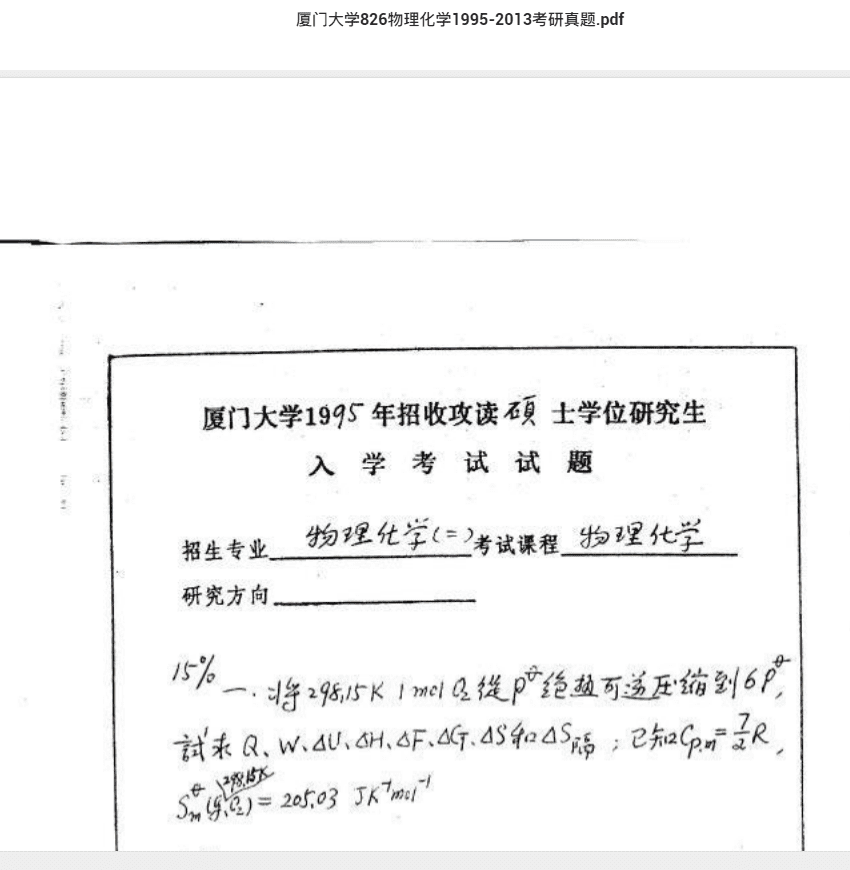 厦门大学826物理化学1995-2013考研真题.pdf
厦门大学1995年招收攻读硕士学位研究生
入学考试试题
招生专业 物理化学(二) 考试课程 物理化学
研究方向
15% 一.将298.15K 1mol O₂從P^θ绝热可逆压缩到6P^θ,
試求Q、W、ΔU、ΔH、ΔF、ΔG、ΔS和ΔS隔;已知Cp.m=7/2R,
S_m^θ(g,O₂)298.15K=205.03 JK⁻¹mol⁻¹